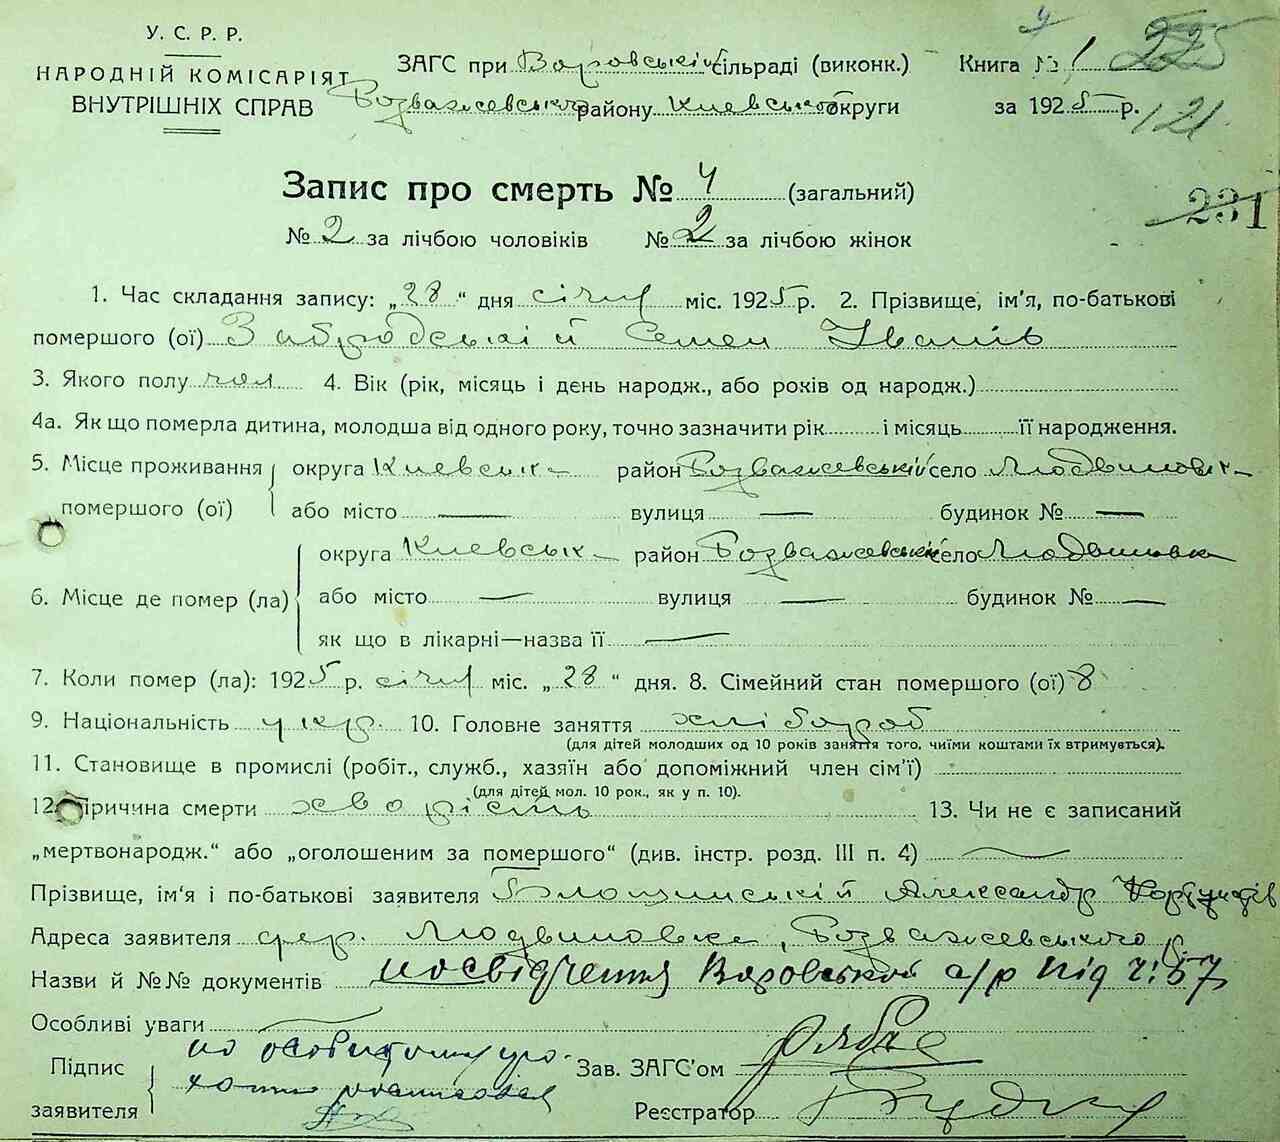 У. С. Р. Р.
НАРОДНІЙ КОМІСАРІЯТ
ВНУТРІШНІХ СПРАВ
ЗАГС при Воровській сільраді (виконк.)
Розважевського району Киевської округи
Книга № 1 225
за 1925 р. 121
Запис про смерть № 4 (загальний)
231
№ 2 за лічбою чоловіків № 2 за лічбою жінок
1. Час складання запису: „28“ дня січня міс. 1925 р. 2. Прізвище, ім'я, по-батькові
помершого (ої) Забродський Семен Іванів
3. Якого полу чол 4. Вік (рік, місяць і день народж., або років од народж.)
4а. Як що померла дитина, молодша від одного року, точно зазначити рік і місяць її народження.
5. Місце проживання помершого (ої) округа Киевська район Розважевський село Людвиновка
або місто — вулиця — будинок № —
6. Місце де помер (ла) округа Киевська район Розважевський село Людвиновка
або місто — вулиця — будинок № —
як що в лікарні—назва її —
7. Коли помер (ла): 1925 р. січня міс. „28“ дня. 8. Сімейний стан помершого (ої) 8
9. Національність укр. 10. Головне заняття хлібороб
(для дітей молодших од 10 років заняття того, чиїми коштами їх втримується).
11. Становище в промислі (робіт., служб., хазяїн або допоміжний член сім'ї)
(для дітей мол. 10 рок., як у п. 10).
12. Причина смерти хворість 13. Чи не є записаний
„мертвонародж.“ або „оголошеним за помершого“ (див. інстр. розд. III п. 4) —
Прізвище, ім'я і по-батькові заявителя Александр
Адреса заявителя Людвиновка, Розважевського р
Назви й №№ документів посвідчення Воровської с/р під ч: 57
Особливі уваги —
Підпис
заявителя
по особитому про-
Зав. ЗАГС'ом
Реєстратор